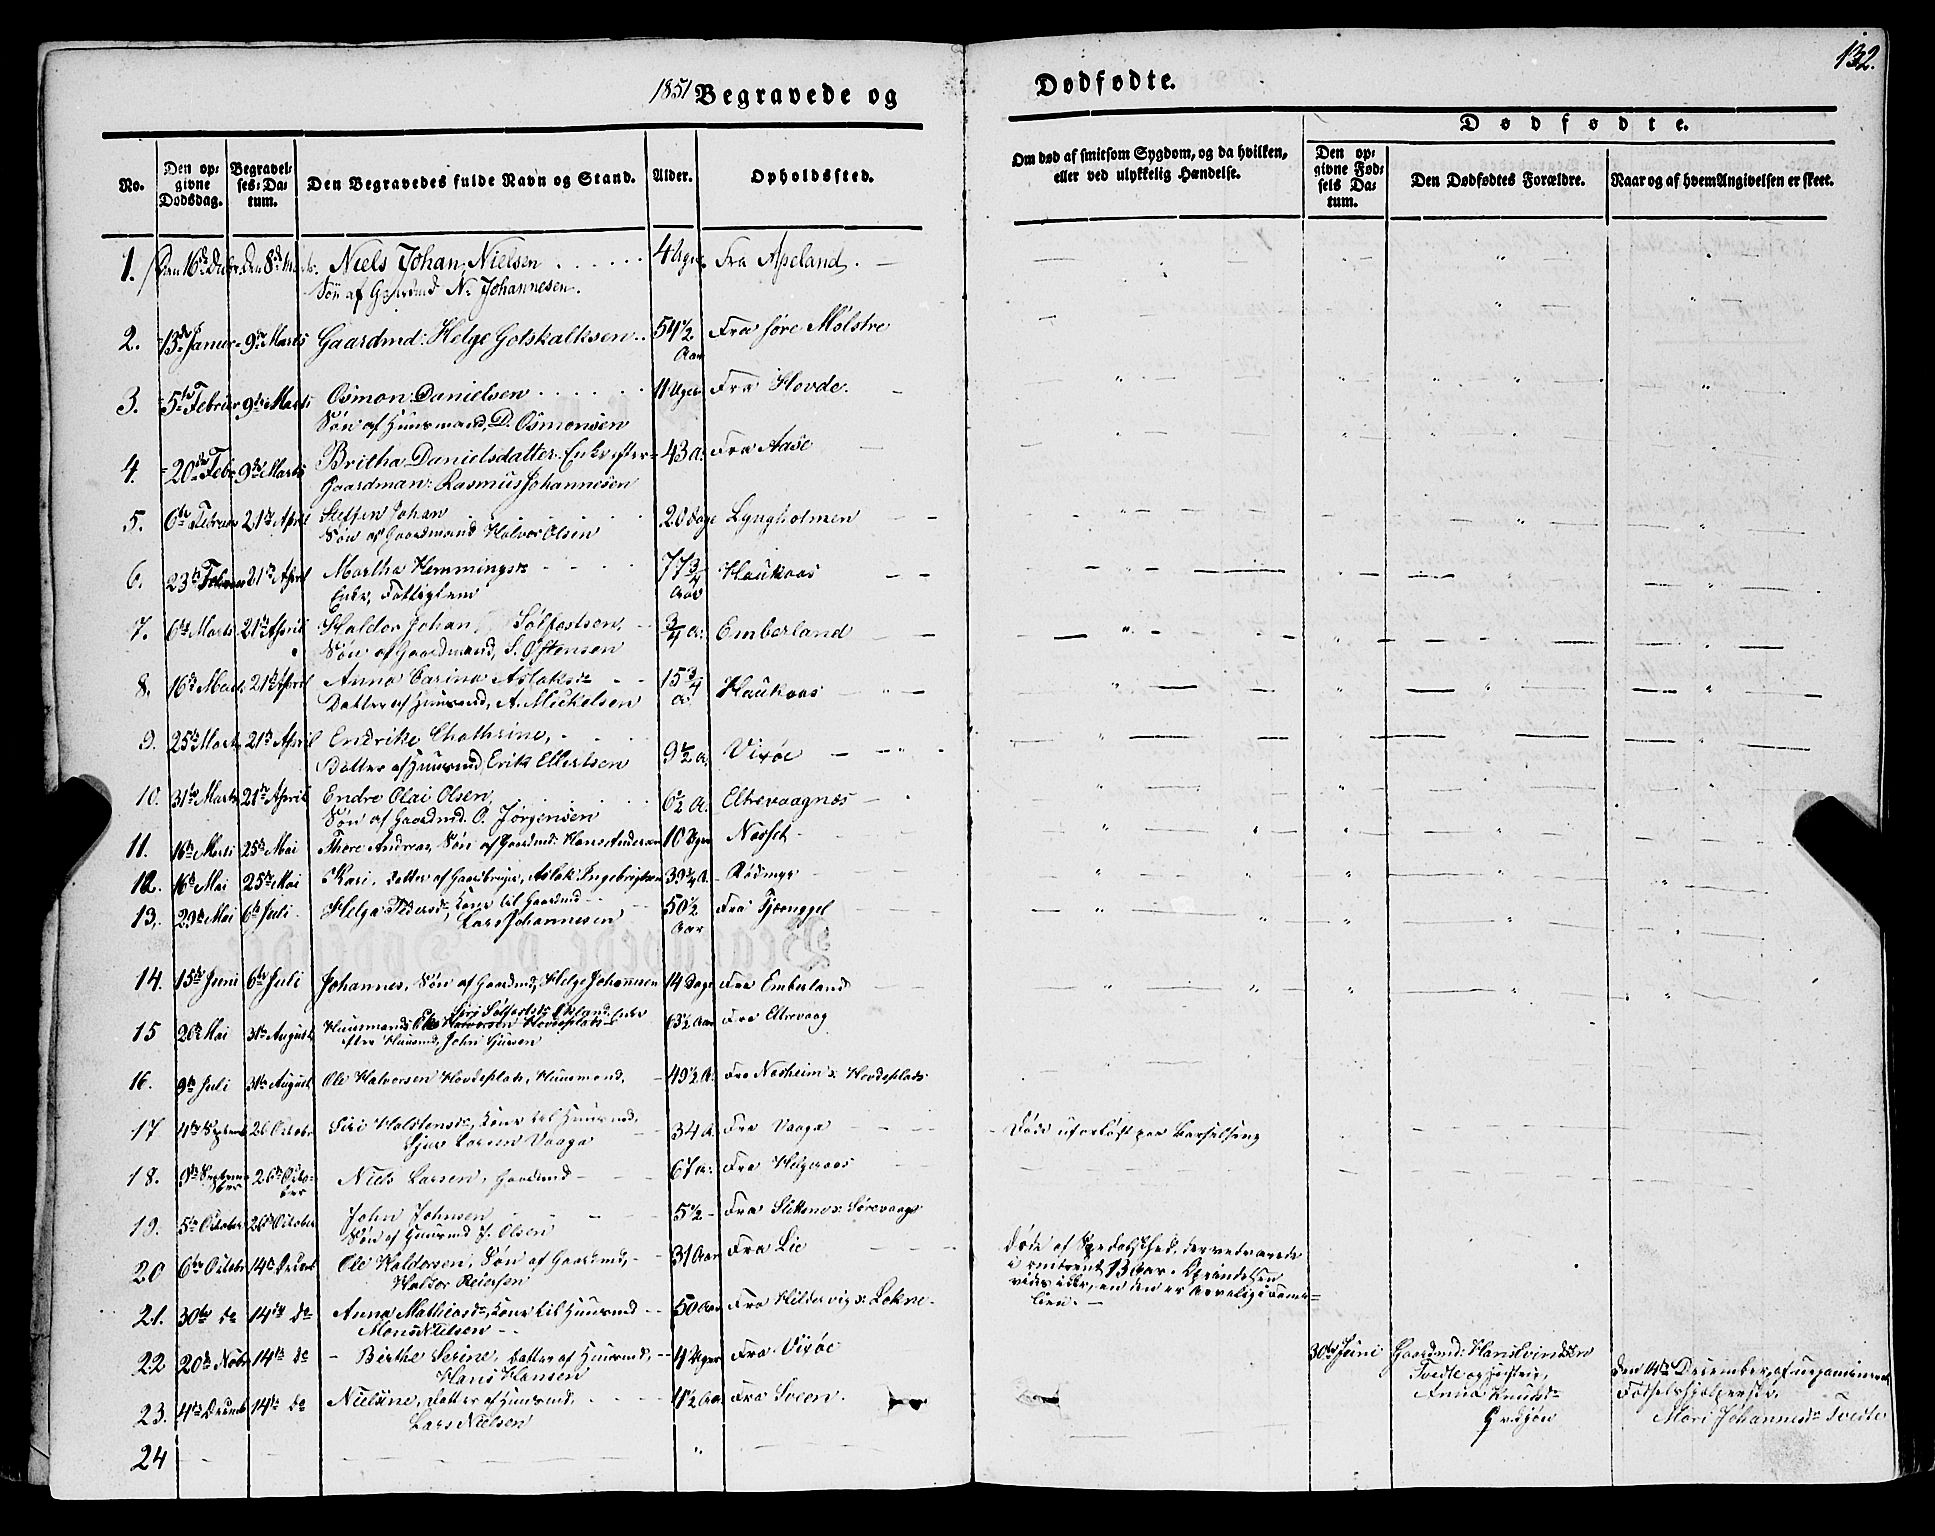 132.
1851 Begravede og Dødfødte.
No.
Den opgivne Dødsdag.
Begravelses-Datum.
Den Begravedes fulde Navn og Stand.
Alder.
Opholdssted.
Om død af smitsom Sygdom, og da hvilken, eller ved ulykkelig Hændelse.
Dødfødte.
Den opgivne Fødsels Datum.
Den Dødfødtes Forældre.
Naar og af hvem Angivelsen er skeet.
1. Niels Johan Nielsen 4 Uger. Fra Apeland.
Søn af Gaardmd N. Johannesen.
2. 15de Januar 9de Marts Gaardmd: Helge Gotskalksen 54 1/2 Aar Fra søre Mølstre
3. 5te Februar 9de Marts Osmon Danielsen 11 Uger Fra Hovde.
Søn af Huusmand, D. Osmonsen
4. 20de Febr 9de Marts Britha Danielsdatter Enke efter 43 a. Fra Aase
Gaardman: Rasmus Johannesen
5. 6te Februar 21de April Steffen Johan 20 Dage Lyngholmen
Søn af Gaardmand Halvor Olsen
6. 23de Februar 21de April Martha Hemmingsdr 77 3/4 Aar Haukaas
Enke, Fattiglem
7. 6te Marts 21de April Haldor Johan Sølfæstsen 3/4 a. Emberland
Søn af Gaardmand, S. Østensen
8. 16de Marts 21de April Anna Carina Aslaksdr 15 3/4 a Haukaas
Datter af Huusmd, A. Mickelsen
9. 25de Marts 21de April Endrike Chathrine, 9 1/2 a. Vixøe
Datter af Huusmd Erik Ellertsen
10. 31te Marts 21de April Endre Olai Olsen 6 1/2 a. Eltrevaagnæs
Søn af Gaardmd. O. Jørgensen
11. 16de Marts 25de Mai Thore Andreas, Søn af Gaardmd: Hans Andersen 10 Uger Næsset
12. 16de Mai 25de Mai Kari, Datter af Gaardbruger, Aslak Ingebrigtsen 39 1/4 a. Rødmyr
13. 29de Mai 6te Juli Helga Pedersdr Kone til Gaardmd 50 1/2 Aar Fra Fjænggel
Lars Johannesen
14. 15de Juni 6te Juli Johannes, Søn af Gaardmd, Helge Johannesen 14 Dage Fra Emberland
Siri Sølfæstsdr Økland, Enke
15 26de Mai 31te August Huusmands Ole Halvorsen Hovdeplads 63 1/2 Aar Fra Eltrevaag
efter Huusmd, John Sjursen
16. 9de Juli 31te August Ole Halvorsen Hovdeplads, Huusmand, 49 1/2 a. Fra Næsheim v: Hovdeplads
17 4de Septemb 26 October Siri Halstensdr, Kone til Huusmd, 34 a. Fra Vaaga Døde uforløst paa Barselseng
Sjur Larsen Vaaga
18. 9de September 26de October Niels Larsen, Gaardmd 67 a. Fra Helgeraas
19. 5te October 26de October John Johnsen 5 1/2 Fra Slettene v: Sørevaage
Søn af Huusmd J. Olsen
20 6te October 14de Decemb Ole Haldorsen, Søn af Gaardmd, 31 Aar Fra Lie
Haldor Reiersen
Døde af Spedalskhed, der vedvarede
i omtrent 13 Aar. Oprindelsen
vides ikke, en den er arvelig i Familien.
21. 30te do 14de do Anna Mathiasdr, Kone til Huusmd 50 Aar Fra Hildervig v: Lokne
Mons Nielsen
22 20de Novbr 14de do Birthe Serine, Datter af Huusmd, 4 Uger Fra Vixøe
Hans Hansen
23. 4de Decemb 14de do Nielsine, Datter af Huusmd, 4 1/2 Aar Fra Sveen.
Lars Nielsen
30te Juni Gaardmd: Hans Evindsen
Tvedte og Hustru,
Anna Knudsdr
Grdsjøn
Den 14de December, af uexamineret
Fødselshjelperske,
Mari Johannesdr Tvedte
24